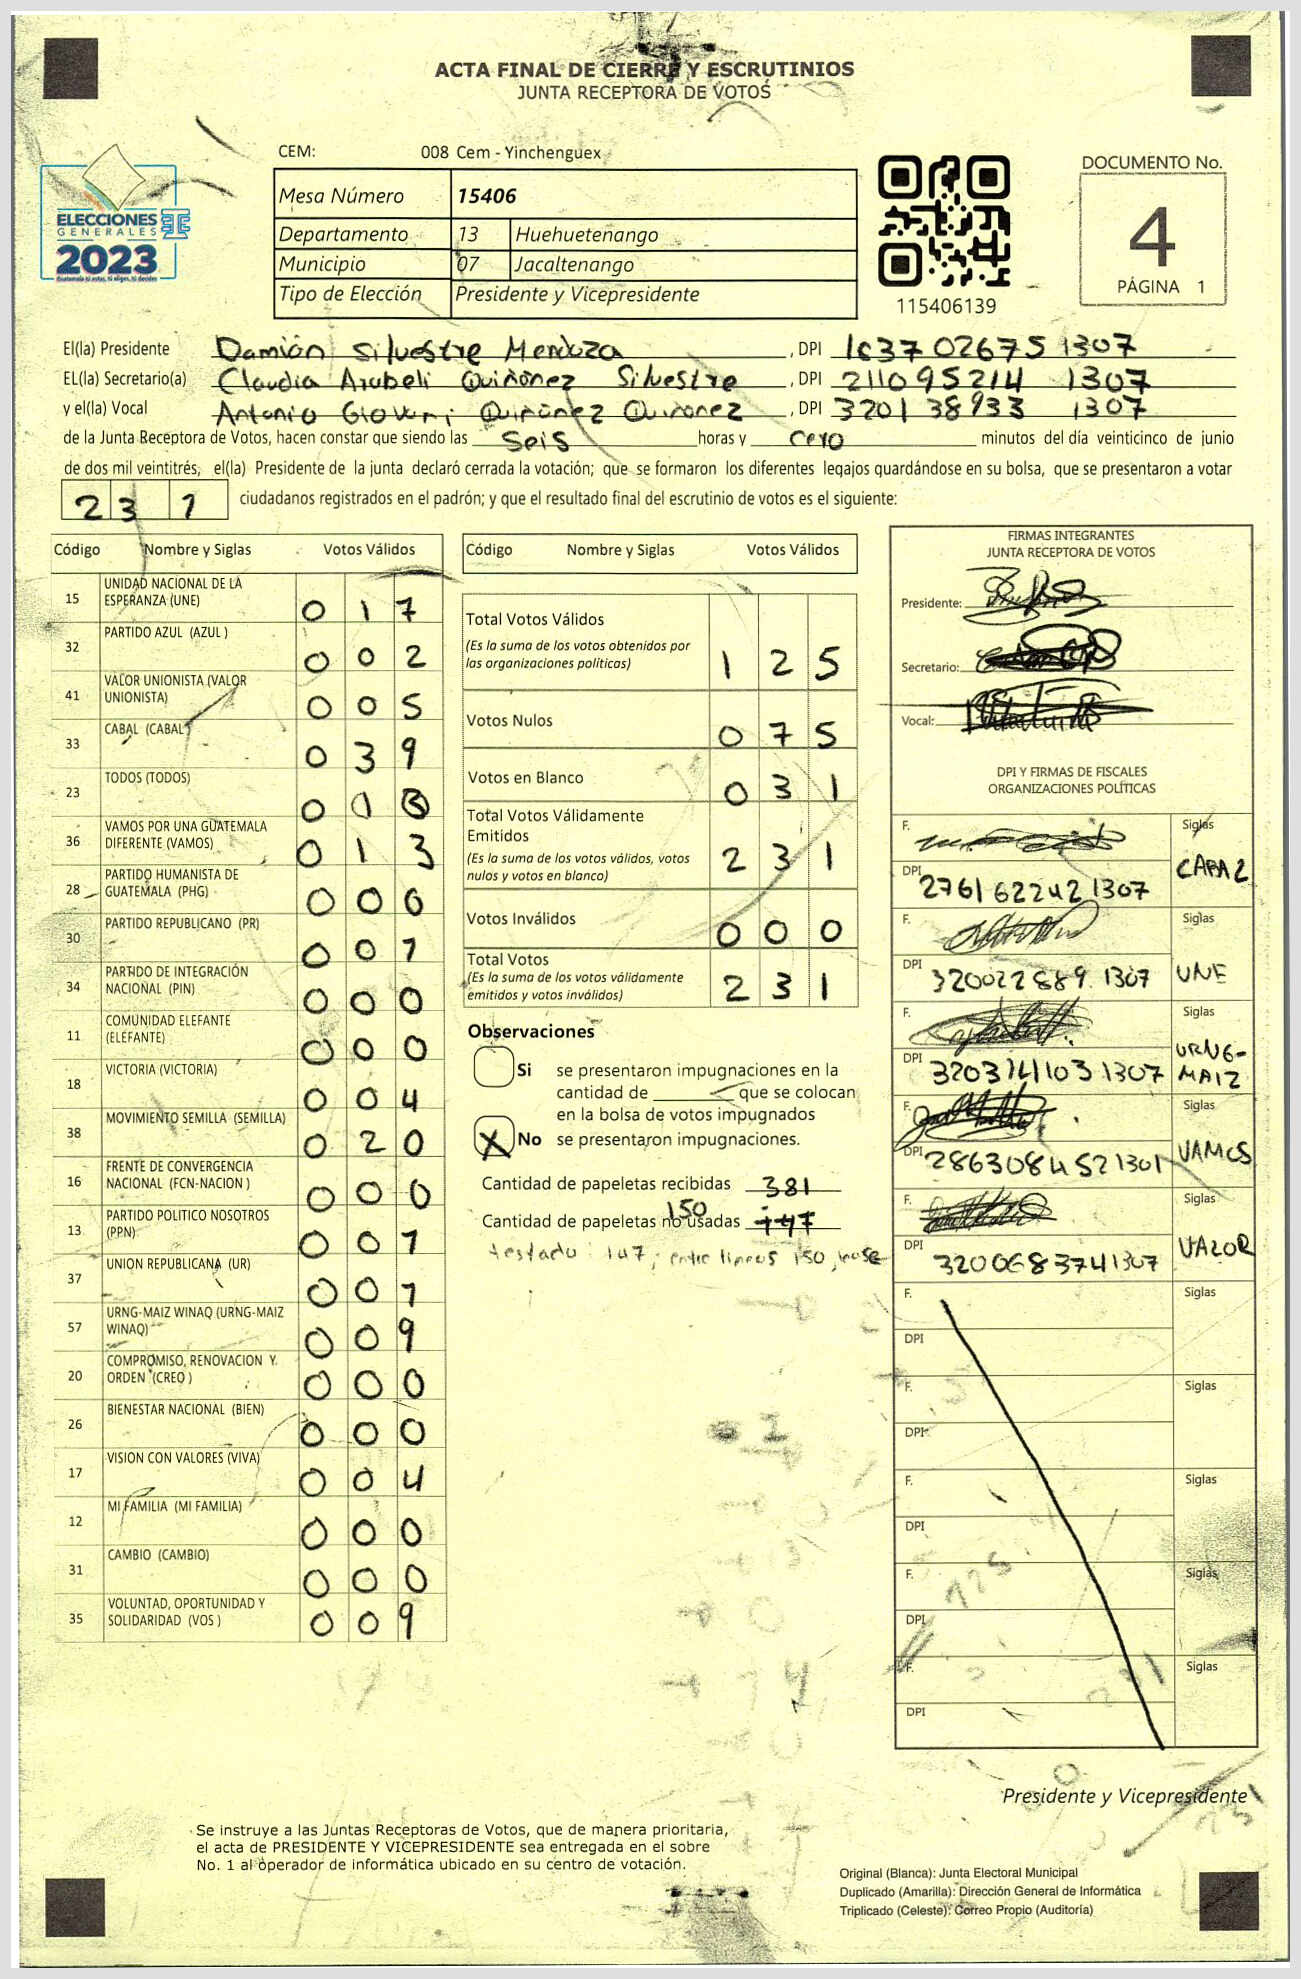 ACTA FINAL DE CIERRE Y ESCRUTINIOS
JUNTA RECEPTORA DE VOTOS
CEM: 008 Cem - Yinchenguex
ELECCIONES
GENERALES
2023
Mesa Número 15406
Departamento 13 Huehuetenango
Municipio 07 Jacaltenango
Tipo de Elección Presidente y Vicepresidente
115406139
DOCUMENTO No.
4
PÁGINA 1
El(la) Presidente Damián Silvestre Mendoza, DPI 1637 02675 1307
EL(la) Secretario(a) Claudia Arabeli Quiñónez Silvestre, DPI 211095214 1307
y el(la) Vocal Antonio Giovani Quiñónez Quiñonez, DPI 3201 38933 1307
de la Junta Receptora de Votos, hacen constar que siendo las Seis horas y cero minutos del día veinticinco de junio
de dos mil veintitrés, el(la) Presidente de la junta declaró cerrada la votación; que se formaron los diferentes legajos quardándose en su bolsa, que se presentaron a votar
231 ciudadanos registrados en el padrón; y que el resultado final del escrutinio de votos es el siguiente:
Código Nombre y Siglas Votos Válidos
15 UNIDAD NACIONAL DE LA ESPERANZA (UNE) 017
32 PARTIDO AZUL (AZUL ) 002
41 VALOR UNIONISTA (VALOR UNIONISTA) 005
33 CABAL (CABAL) 039
23 TODOS (TODOS)
36 VAMOS POR UNA GUATEMALA DIFERENTE (VAMOS) 013
28 PARTIDO HUMANISTA DE GUATEMALA (PHG)
30 PARTIDO REPUBLICANO (PR) 001
34 PARTIDO DE INTEGRACIÓN NACIONAL (PIN) 000
11 COMUNIDAD ELEFANTE (ELEFANTE) 000
18 VICTORIA (VICTORIA) 004
38 MOVIMIENTO SEMILLA (SEMILLA) 020
16 FRENTE DE CONVERGENCIA NACIONAL (FCN-NACION ) 000
13 PARTIDO POLITICO NOSOTROS (PPN) 001
37 UNION REPUBLICANA (UR) 001
57 URNG-MAIZ WINAQ (URNG-MAIZ WINAQ) 009
20 COMPROMISO, RENOVACION Y ORDEN (CREO ) 000
26 BIENESTAR NACIONAL (BIEN) 000
17 VISION CON VALORES (VIVA) 004
12 MI FAMILIA (MI FAMILIA) 000
31 CAMBIO (CAMBIO) 000
35 VOLUNTAD, OPORTUNIDAD Y SOLIDARIDAD (VOS ) 009
Código Nombre y Siglas Votos Válidos
Total Votos Válidos 125
(Es la suma de los votos obtenidos por
las organizaciones políticas)
Votos Nulos 075
Votos en Blanco 031
Total Votos Válidamente
Emitidos 231
(Es la suma de los votos válidos, votos
nulos y votos en blanco)
Votos Inválidos 000
Total Votos 231
(Es la suma de los votos válidamente
emitidos y votos inválidos)
Observaciones
Si se presentaron impugnaciones en la
cantidad de que se colocan
en la bolsa de votos impugnados
X No se presentaron impugnaciones.
Cantidad de papeletas recibidas 381
150
Cantidad de papeletas no usadas 147
testado: 147; entre lineas 150, lease
FIRMAS INTEGRANTES
JUNTA RECEPTORA DE VOTOS
Presidente:
Secretario:
Vocal:
DPI Y FIRMAS DE FISCALES
ORGANIZACIONES POLÍTICAS
F. Siglas
DPI 2761 62242 1307 CABAL
F. Siglas
DPI 320022889 1307 UNE
F. Siglas
DPI 320314103 1307 URNG-MAIZ
F. Siglas
DPI 286308452 1301 VAMOS
F. Siglas
DPI 320068374 1307 VALOR
F. Siglas
DPI
F. Siglas
DPI
F. Siglas
DPI
F. Siglas
DPI
F. Siglas
DPI
Presidente y Vicepresidente
Se instruye a las Juntas Receptoras de Votos, que de manera prioritaria,
el acta de PRESIDENTE Y VICEPRESIDENTE sea entregada en el sobre
No. 1 al operador de informática ubicado en su centro de votación.
Original (Blanca): Junta Electoral Municipal
Duplicado (Amarilla): Dirección General de Informática
Triplicado (Celeste): Correo Propio (Auditoría)